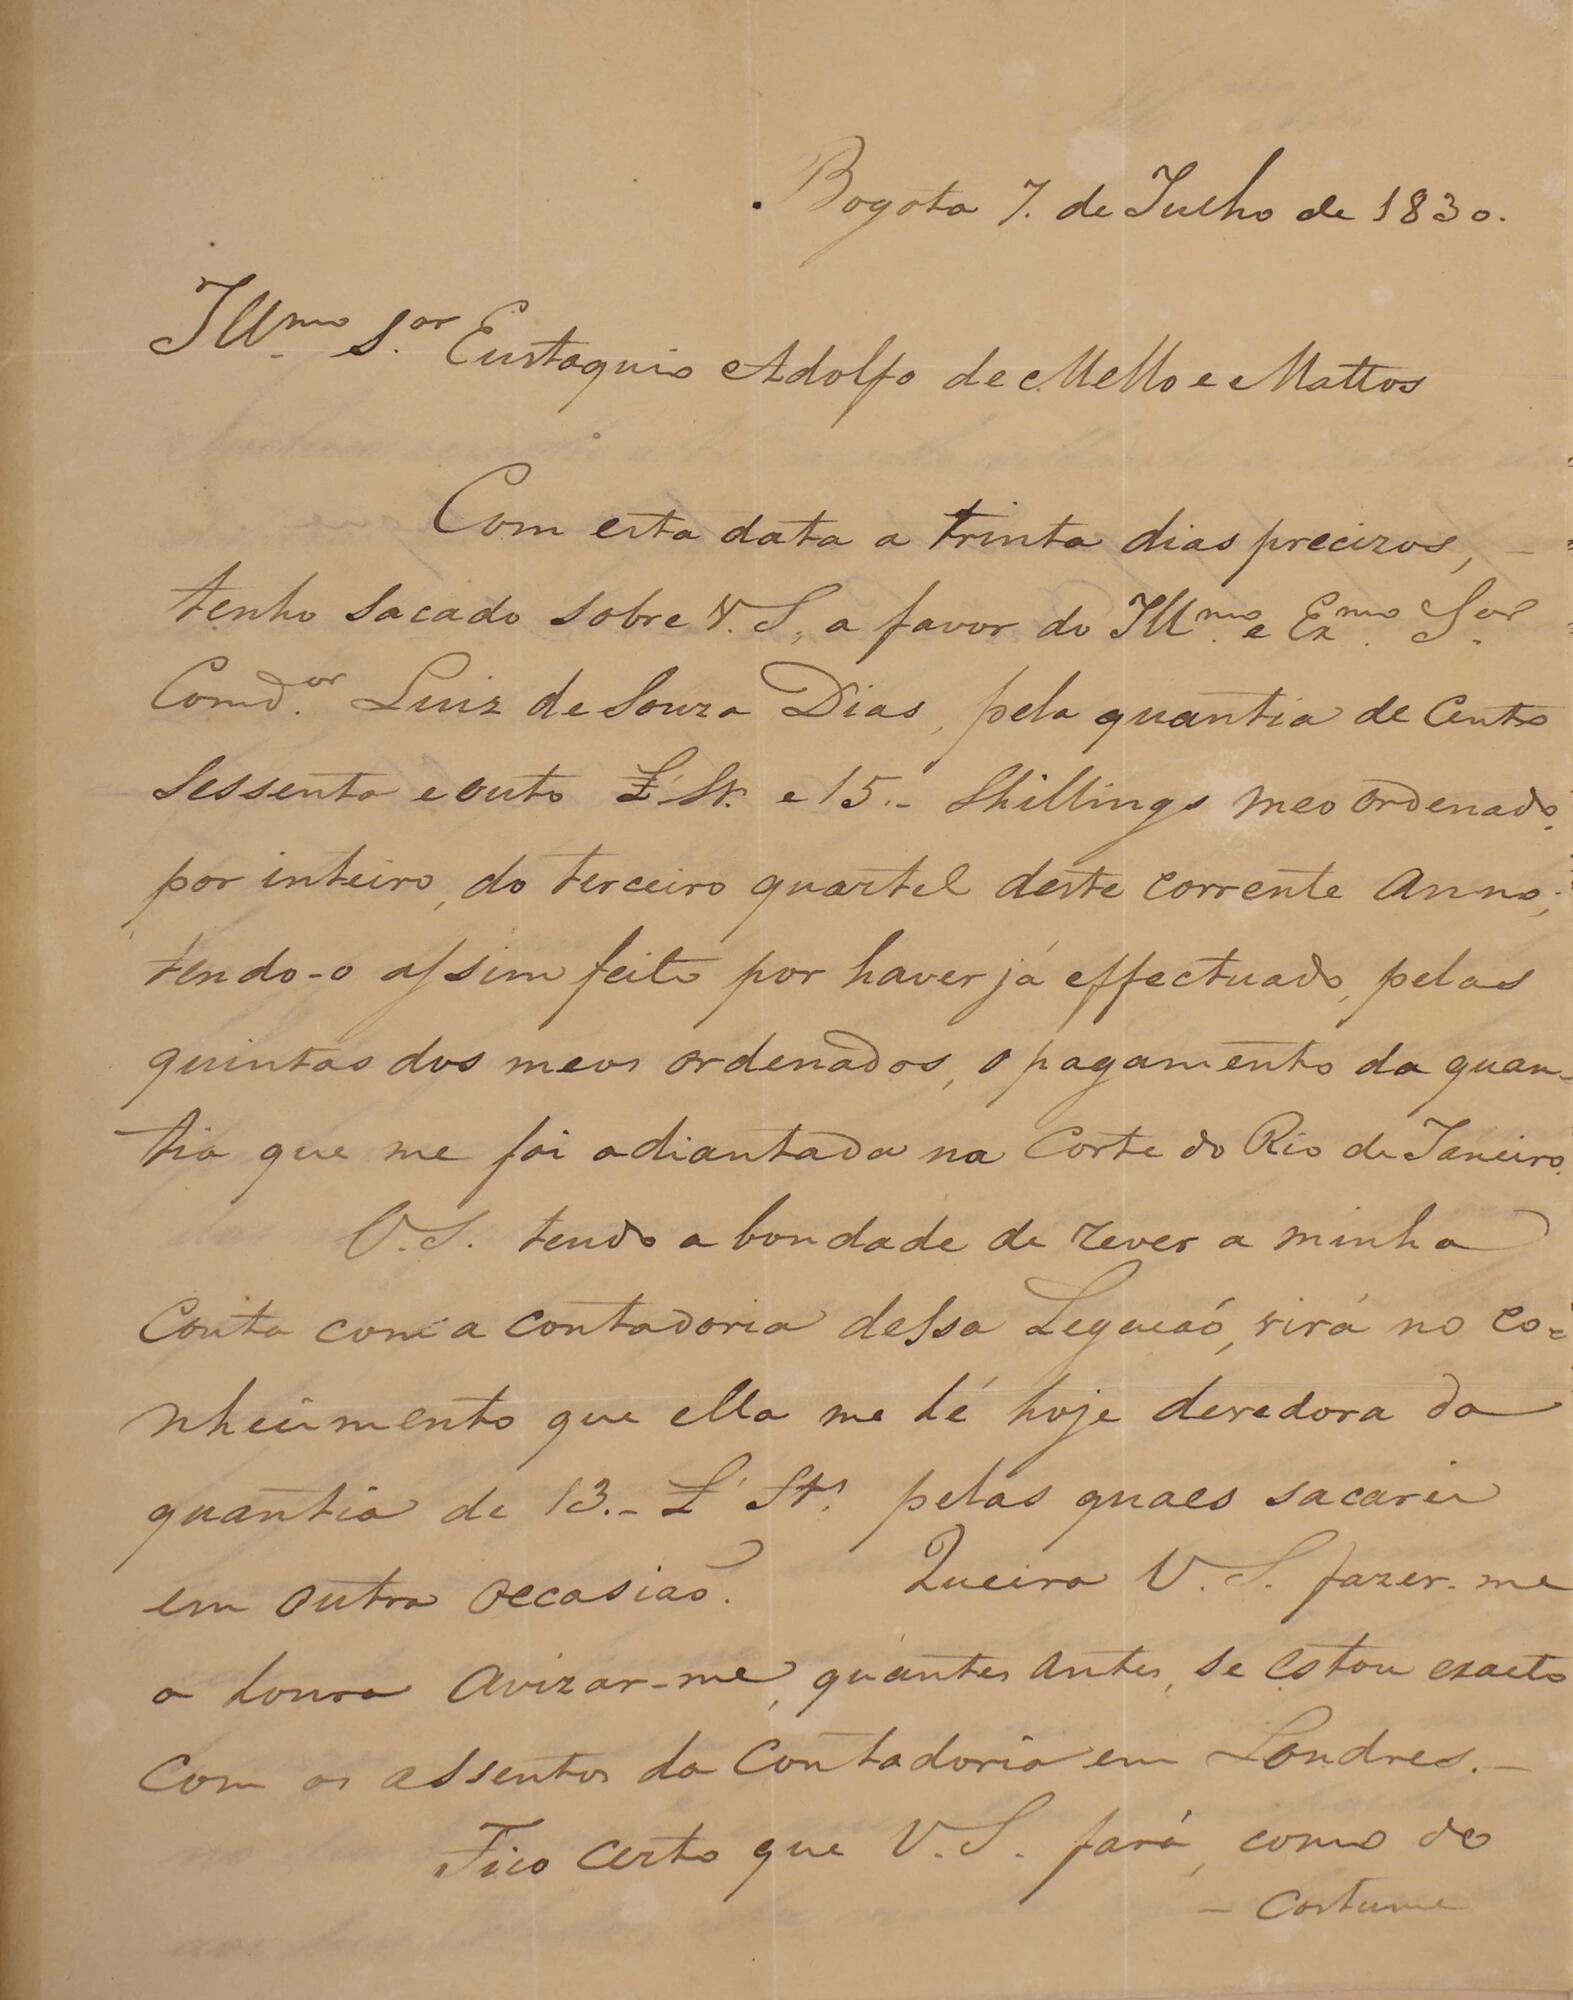 Bogota 7. de Julho de 1830.
Illmo Sor Eustaquio Adolfo de Mello e Mattos
Com esta data a trinta dias precizos,
tenho sacado sobre V. S., a favor do Illmo e Exmo Sor
Comdor Luiz de Souza Dias, pela quantia de Cento
Sessenta e outo £ St. e 15.- Shillings meo ordenado,
por inteiro, do terceiro quartel deste corrente Anno,
tendo-o assim feito por haver já effectuado, pelas
quintas dos meos ordenados, o pagamento da quan-
tia que me foi adiantada na Corte do Rio de Janeiro.
V. S. tendo a bondade de rever a minha
Conta com a contadoria dessa Legacaó, virá no co-
nhecimento que ella me hé hoje devedora da
quantia de 13.- £ St. pelas quaes sacarei
em outra occasiaõ. Queira V. S. fazer-me
a honra avizar-me, quantes antes, se estou exacto
com os assentos da Contadoria em Londres.-
Fico certo que V. S. fará, como do
- costume